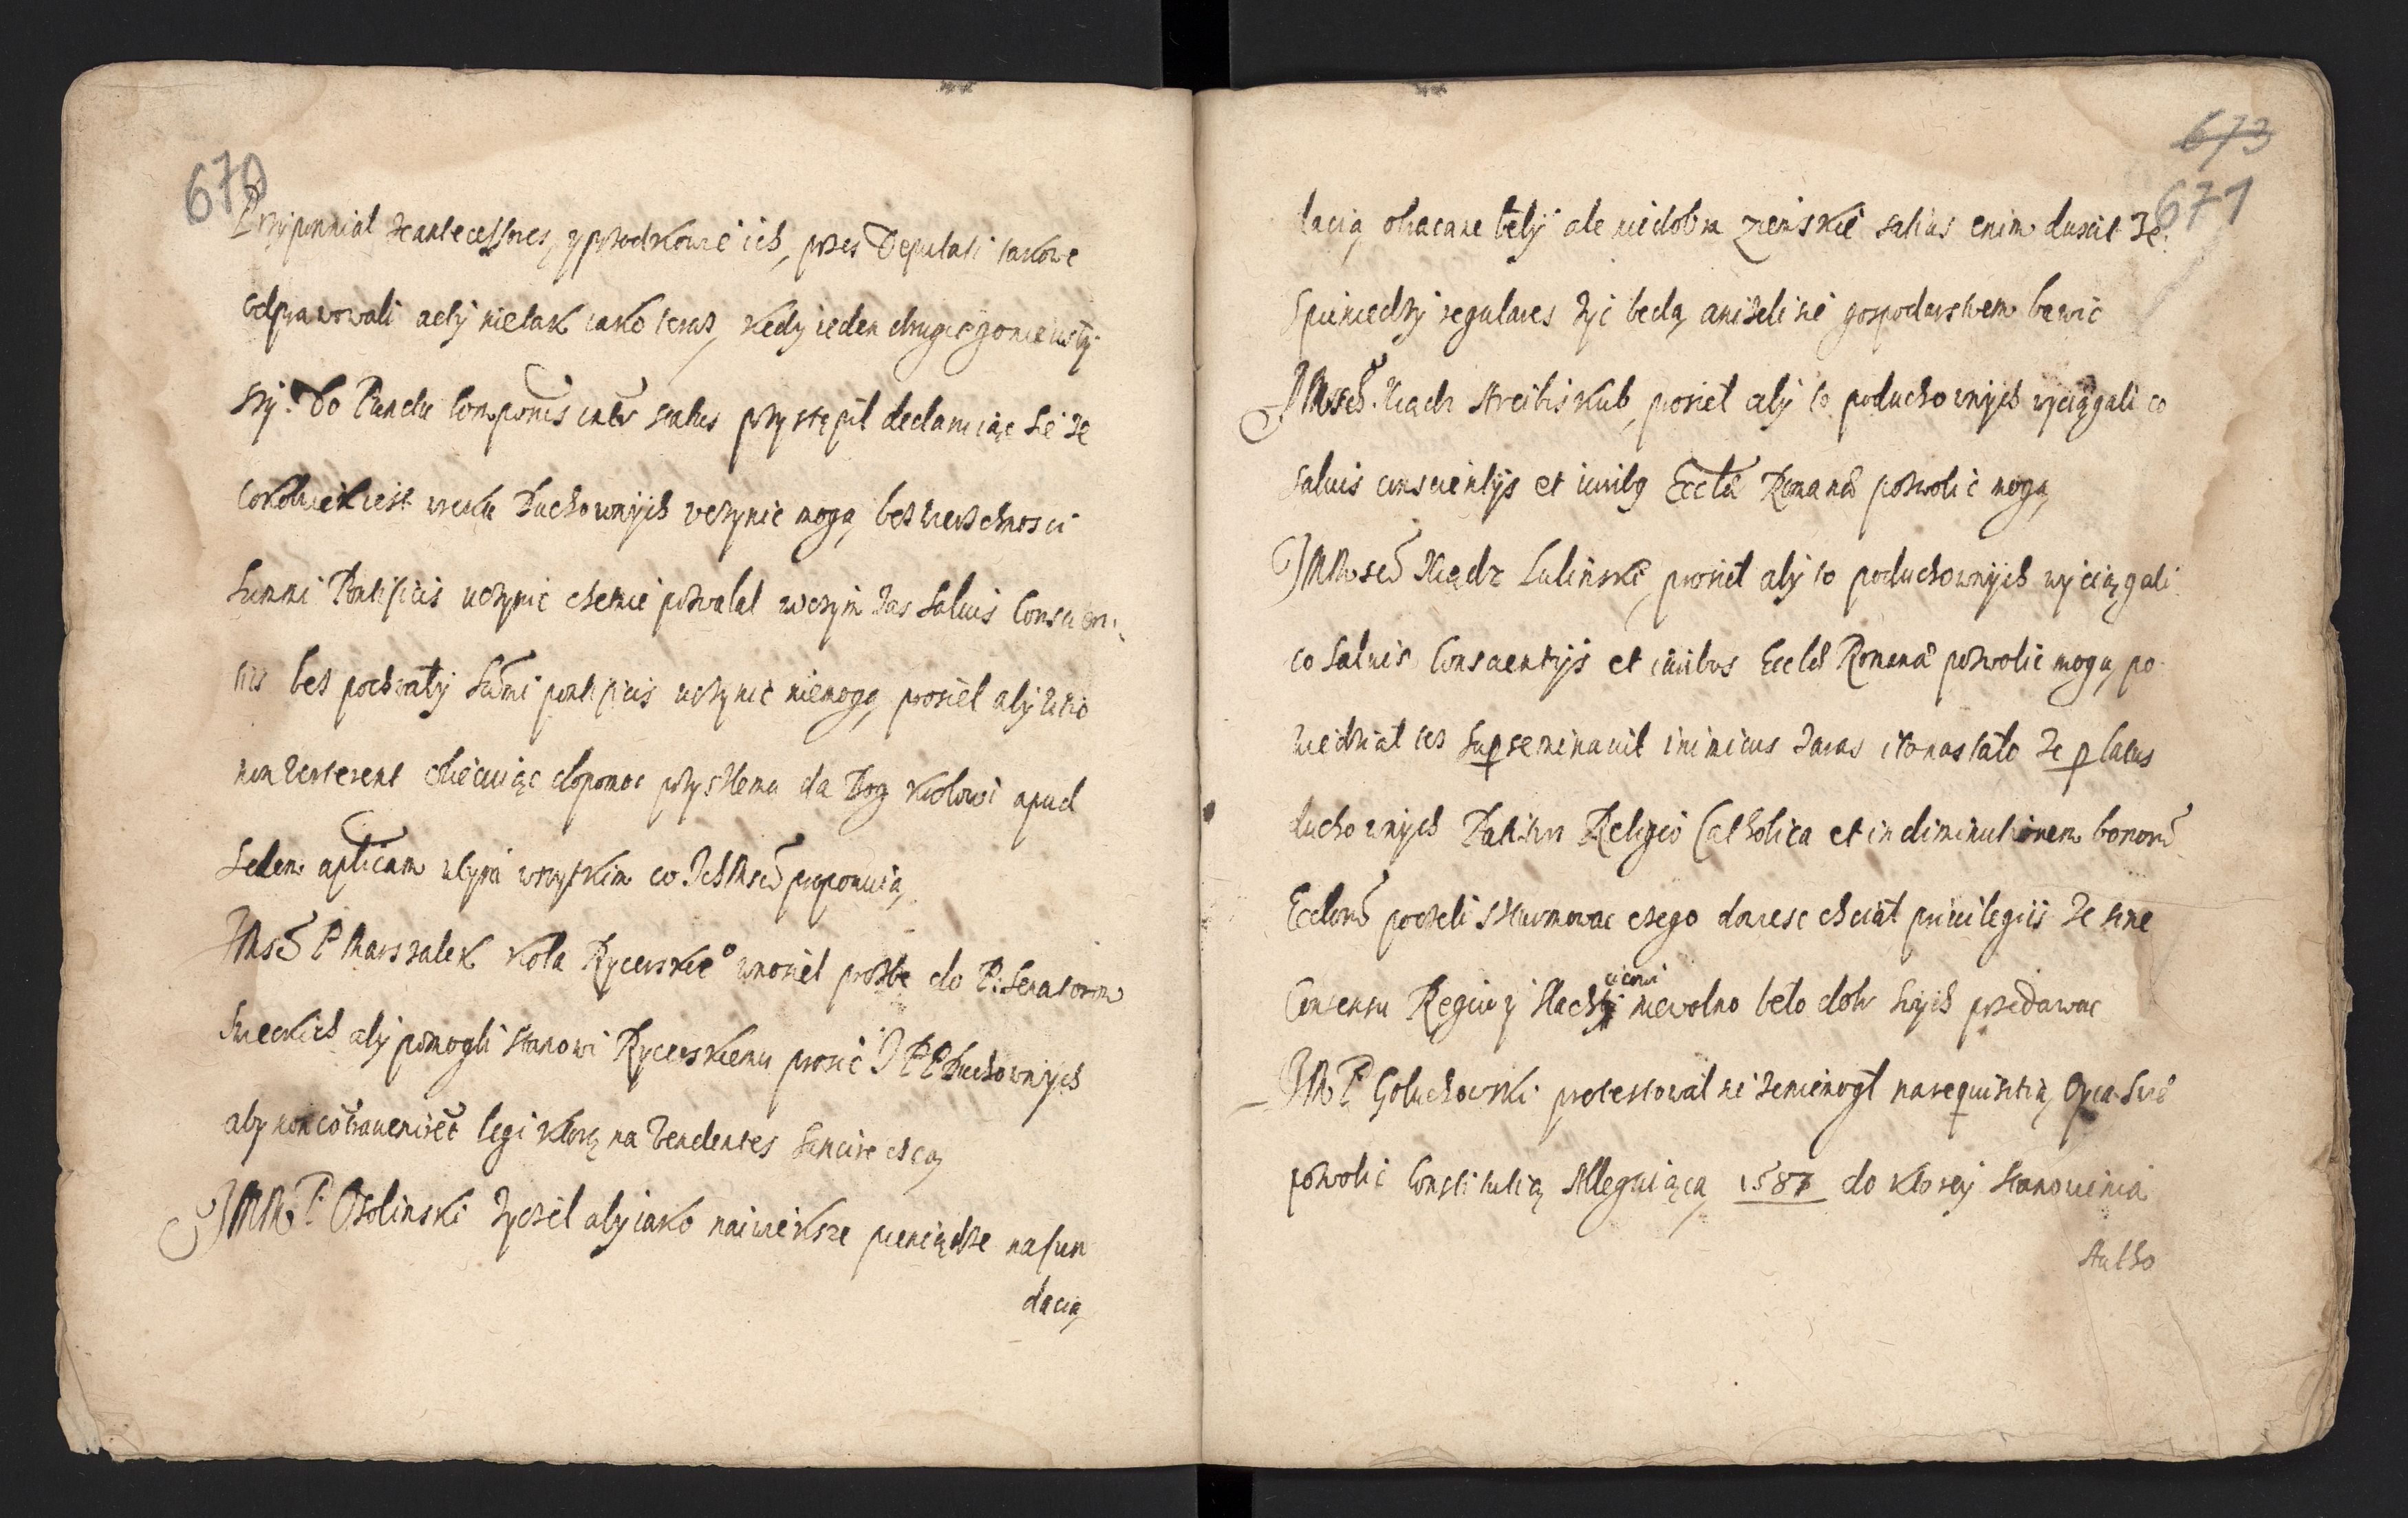 670
Przypomniał ze antecessores, y przodkowie ich, przes Deputati takowe
odprawowali acty nie tak iako teraz, kedy ieden drugiego nie usły
szy. Do Punctu Compoñis inter status przystąpił declaruiąc sie ze
cokolwiek iest w ręku Duchownych uczynic mogą bez zwierzchnosci
Summi Pontificis uczynic chetnie pozwalał w czym zas Saluis Conscien-
tiis bez pochwały Sũmi pontificis uczynic niemogą prosieł aby to
non verterent obiecuiąc dopomoc przyszłemu da Bog Krolowi apud
Sedem aplicam w tym wszytkim co Ich Mscie proponuią,
JMsc P Marszałek Koła Rycerskieo wnosieł prozbe do P: Senatorow
Swieckich aby pomogli stanowi Rycerskiemu prosic J P P Duchownych
aby non cõtraveniret legi ktorą na Tendentes Sancire chcą,
JMM P: Osolinski zyczeł aby iako naiwieksze pieniądze na fun
dacią,
673
671
lacią obracane beły ale nie dobra zięmskie satius enim duxit ze
s pieniedzy regulares zyc bedą anizeli sie gospodarstwem bawic
JMsc Xiądz Arcibiskub, prosieł aby to po duchownych wyciągali co
saluis conscientijs et iuribq Eccle Romanæ pozwolic mogą,
JMMsc Xiądz Lulinski, prosieł aby to po duchownych wyciągali
co Saluis Conscientijs et iuribus Eccles Romanæ pozwolic mogą po
wiedział tez superseminauit inimicus zas i to nastało ze p latus
duchownych Patitur Religio Catholica et in diminutionem bonorũ
Ecclarũ poczeli szturmowac czego dowiesc chciał priuilegiis ze sine
Consensu Regio y Slachcicowi niewolno beło dobr swych przedawac
JM P Goluchowski protestował sie ze niemogł na requisitią Oyca Sieo
pozwolic Constitutią Allegui ącą 1587 do ktorey stanowienia
Autho